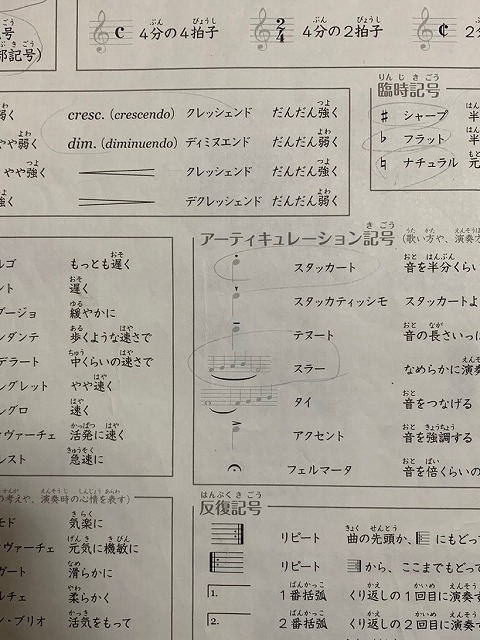 号
部記号)
C 4分の4拍子
2/4 4分の2拍子
¢ 2分
臨時記号
♯ シャープ 半
♭ フラット 半
♮ ナチュラル 元
弱く
cresc. (crescendo) クレッシェンド だんだん強く
やや弱く
dim. (diminuendo) ディミヌエンド だんだん弱く
やや強く
クレッシェンド だんだん強く
強く
デクレッシェンド だんだん弱く
アーティキュレーション記号 (歌い方や、演奏方
スタッカート 音を半分くらい
スタッカティッシモ スタッカートよ
テヌート 音の長さいっ
スラー なめらかに演奏
タイ 音をつなげる
アクセント 音を強調する
フェルマータ 音を倍くらいの
ルゴ もっとも遅く
ント 遅く
ダージョ 緩やかに
ンダンテ 歩くような速さで
デラート 中くらいの速さで
レグレット やや速く
レグロ 速く
ヴァーチェ 活発に速く
レスト 急速に
の考えや、演奏時の心情を表す)
モド 気楽に
ヴァーチェ 元気に機敏に
ガート 滑らかに
ルチェ 柔らかく
ン・ブリオ 活気をもって
反復記号
リピート 曲の先頭か、 にもどって
リピート から、ここまでもどっ
1. 1番括弧 くり返しの1回目に演奏
2. 2番括弧 くり返しの2回目に演奏